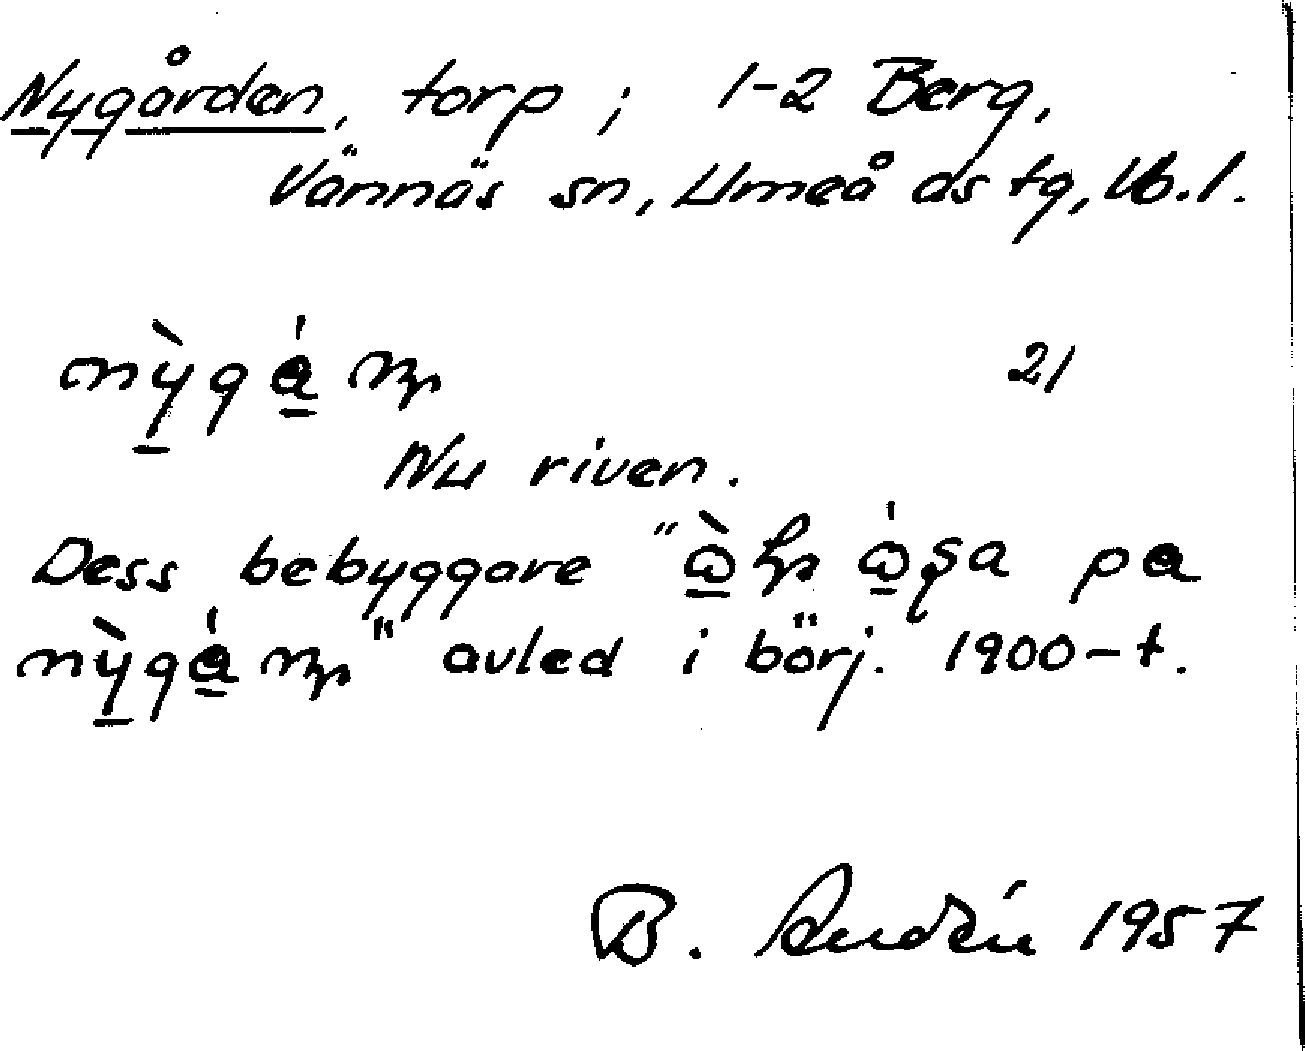 Nygården, torp; 1-2 Berg,
Vännäs sn, Umeå ds tg, Vb. l.
21
Nu riven.
Dess bebyggare " pa
" avled i börj. 1900-t.
B. 1957